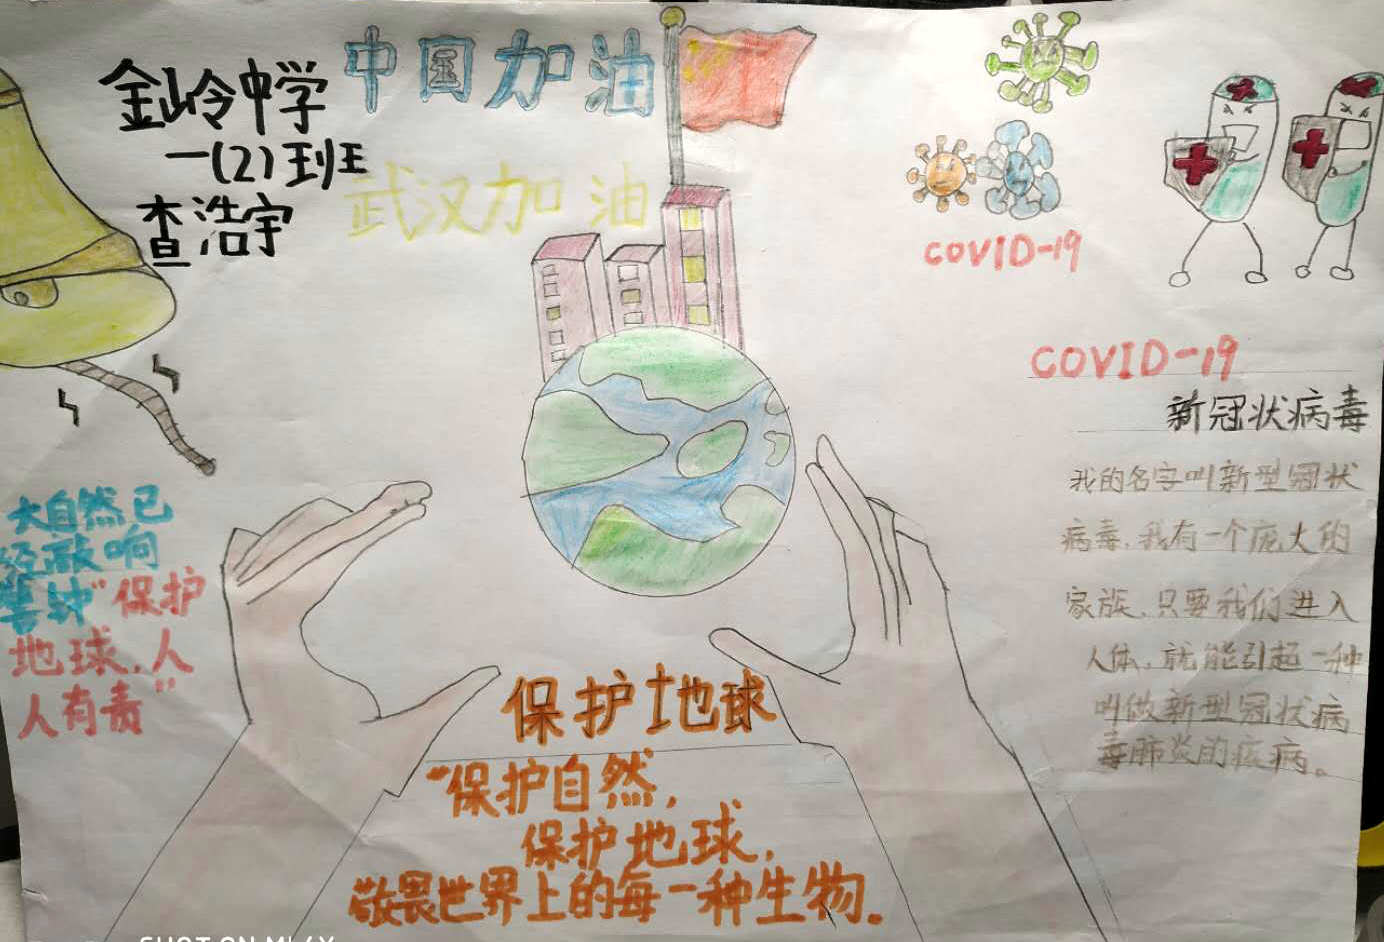 中国加油
金岭中学
一(2)班
查浩宇
武汉加油
COVID-19
COVID-19
新冠状病毒
我的名字叫新型冠状
病毒，我有一个庞大的
家族，只要我们进入
人体，就能引起一种
叫做新型冠状病
毒肺炎的疾病。
大自然已
经敲响
警钟"保护
地球，人
人有责"
保护地球
"保护自然，
保护地球，
敬畏世界上的每一种生物。
SHOT ON MI 6X